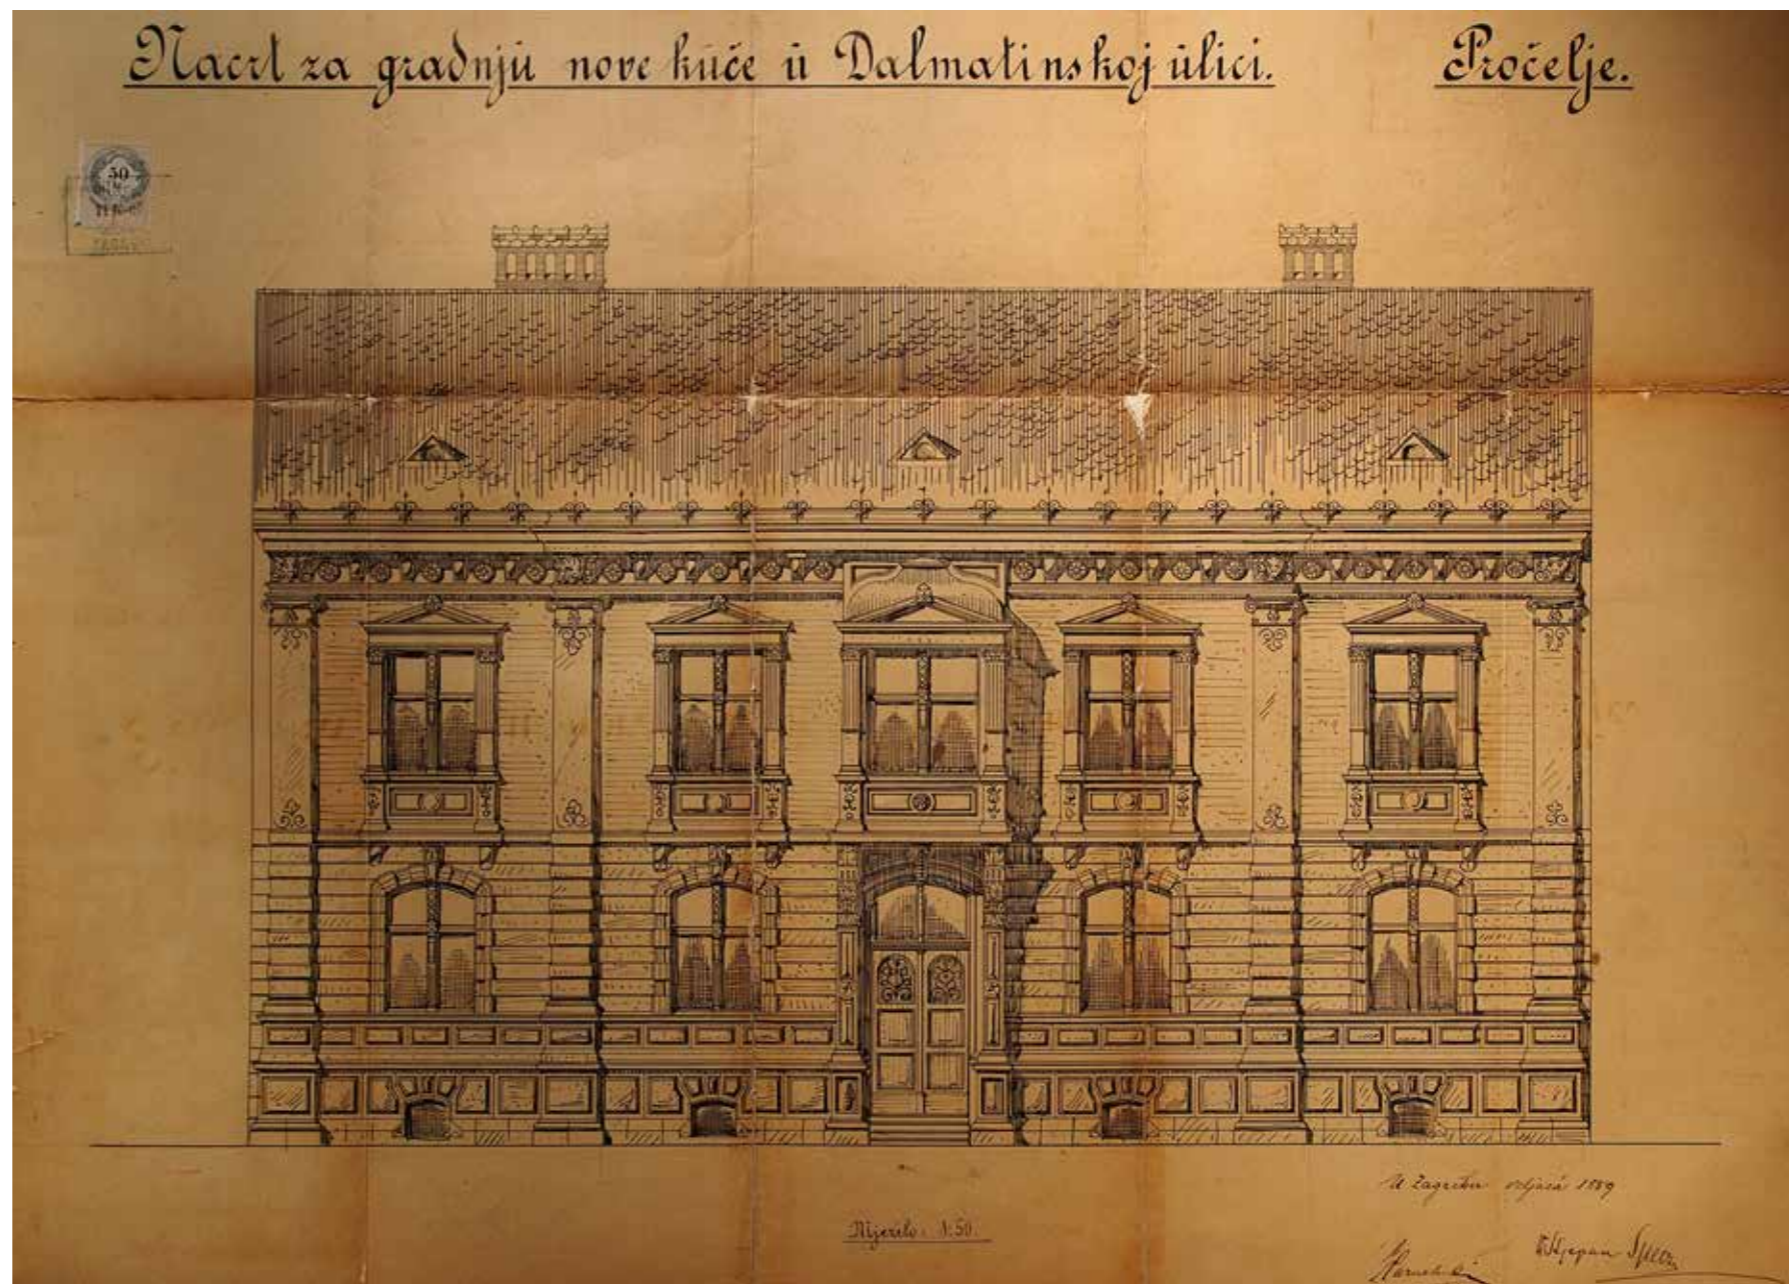 Nacrt za gradnju nove kuće u Dalmatinskoj ulici.
Pročelje.
50
Mjerilo: 1:50.
U Zagrebu veljače 1889
Stjepan